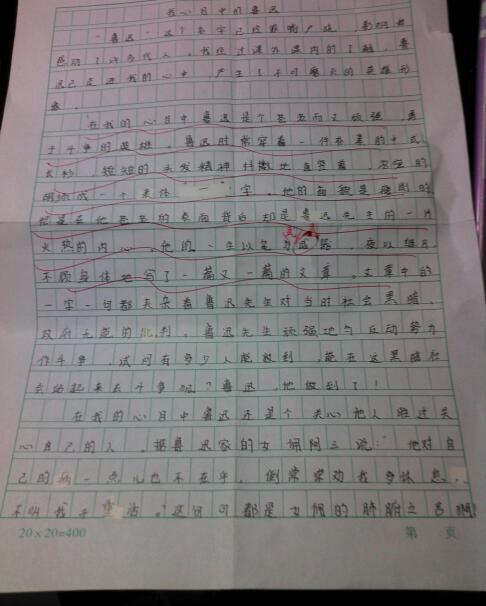 我心目中的鲁迅
“鲁迅”这个名字已经影响广泛，影响并
感动了许多代人。我经过课外课内的了解，鲁
迅已走进我的心中，产生了不可磨灭的英雄形
象。
在我的心目中鲁迅是个甚至而又顽强，勇
于斗争的英雄。鲁迅时常穿着一件朴素的中式
长衫，短短的头发精神抖擞地直竖着，浓密的
胡须成一个隶体“一”字。他的面貌是瘦削的
但是在他苍老的表面背后却是鲁迅先生的一片
火热的内心。他的一生以笔为武器，夜以继日
不顾身体地写了一篇又一篇的文章。文章中的
一字一句都夹杂着鲁迅先生对当时社会黑暗、
政府无能的批判。鲁迅先生顽强地与反动势力
作斗争，试问有多少人能做到，能在这黑暗社
会站起来去斗争呢？鲁迅，他做到了！
在我的心目中鲁迅还是个关心他人胜过关
心自己的人。据鲁迅家的女佣阿三说：“他对自
己的病一点儿也不在乎，倒常常劝我多休息，
不叫我干重活。”这句可都是女佣的肺腑之言啊！
20×20=400
第 页